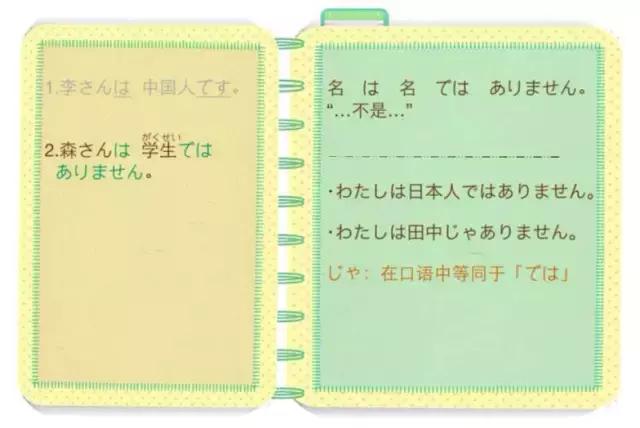 1.李さんは 中国人です。
がくせい
2.森さんは 学生では
ありません。
名 は 名 では ありません。
“…不是…”
·わたしは日本人ではありません。
·わたしは田中じゃありません。
じゃ：在口语中等同于「では」